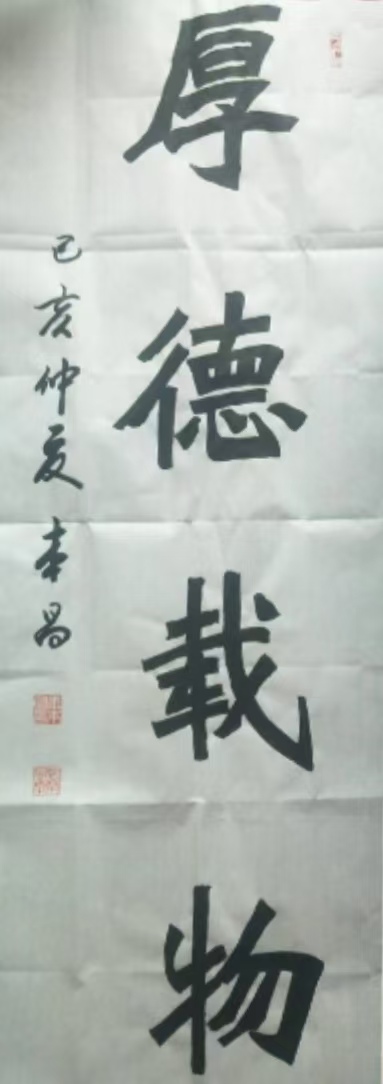 厚德载物
己亥仲夏本昌